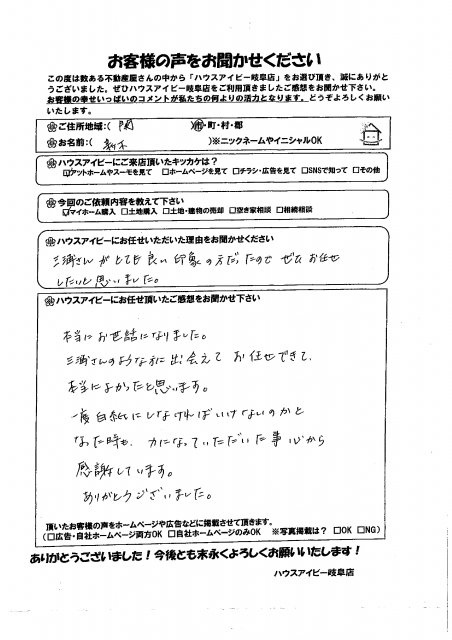 お客様の声をお聞かせください
この度は数ある不動産屋さんの中から「ハウスアイビー岐阜店」をお選び頂き、誠にありがと
うございました。ぜひハウスアイビー岐阜店をご利用頂きましたご感想をお聞かせ下さい。
お客様の幸せいっぱいのコメントが私たちの何よりの活力となります。どうぞよろしくお願い
いたします。
◎ご住所地域:( 関 )市・町・村・郡
◎お名前:( )※ニックネームやイニシャルOK
◎ハウスアイビーにご来店頂いたキッカケは?
☑アットホームやスーモを見て □ホームページを見て □チラシ・広告を見て □SNSで知って □その他
◎今回のご依頼内容を教えて下さい
☑マイホーム購入 □土地購入 □土地・建物の売却 □空き家相談 □相続相談
◎ハウスアイビーにお任せいただいた理由をお聞かせください
三浦さんがとても良い印象の方だったので ぜひお任せ
したいと思いました。
◎ハウスアイビーにお任せ頂いたご感想をお聞かせ下さい
本当にお世話になりました。
三浦さんのような方に出会えて お任せできて、
本当によかったと思います。
一度白紙にしなければいけないのかと
なった時も、力になっていただいた事 心から
感謝しています。
ありがとうございました。
頂いたお客様の声をホームページや広告などに掲載させて頂きます。
(□広告・自社ホームページ両方OK □自社ホームページのみOK ※写真掲載は? □OK □NG)
ありがとうございました!今後とも末永くよろしくお願いいたします!
ハウスアイビー岐阜店